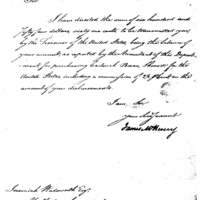 Sir
I have directed the sum of one hundred and
fifty four dollars sixty one cents to be transmitted you
by the Treasurer of the United States being the balance of
your account as reported by the Accountant of this Depart-
ment for purchasing
United States including a commission of 2½ Cent on the
amount of your disbursements.
I am Sir
your obed servant
James McHenry
Jeremiah Wadsworth Esqr.